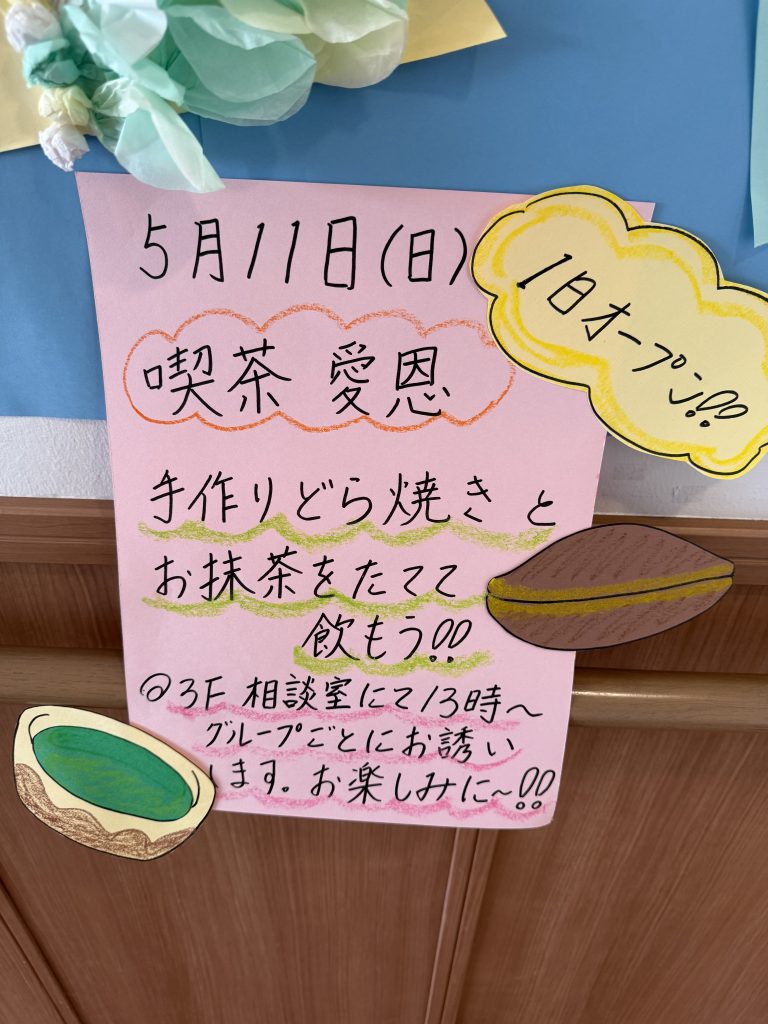 5月11日(日)
1日オープン!!
喫茶 愛恩
手作りどら焼きと
お抹茶をたてて
飲もう!!
◎3F 相談室にて13時〜
グループごとにお誘い
します。お楽しみに〜!!